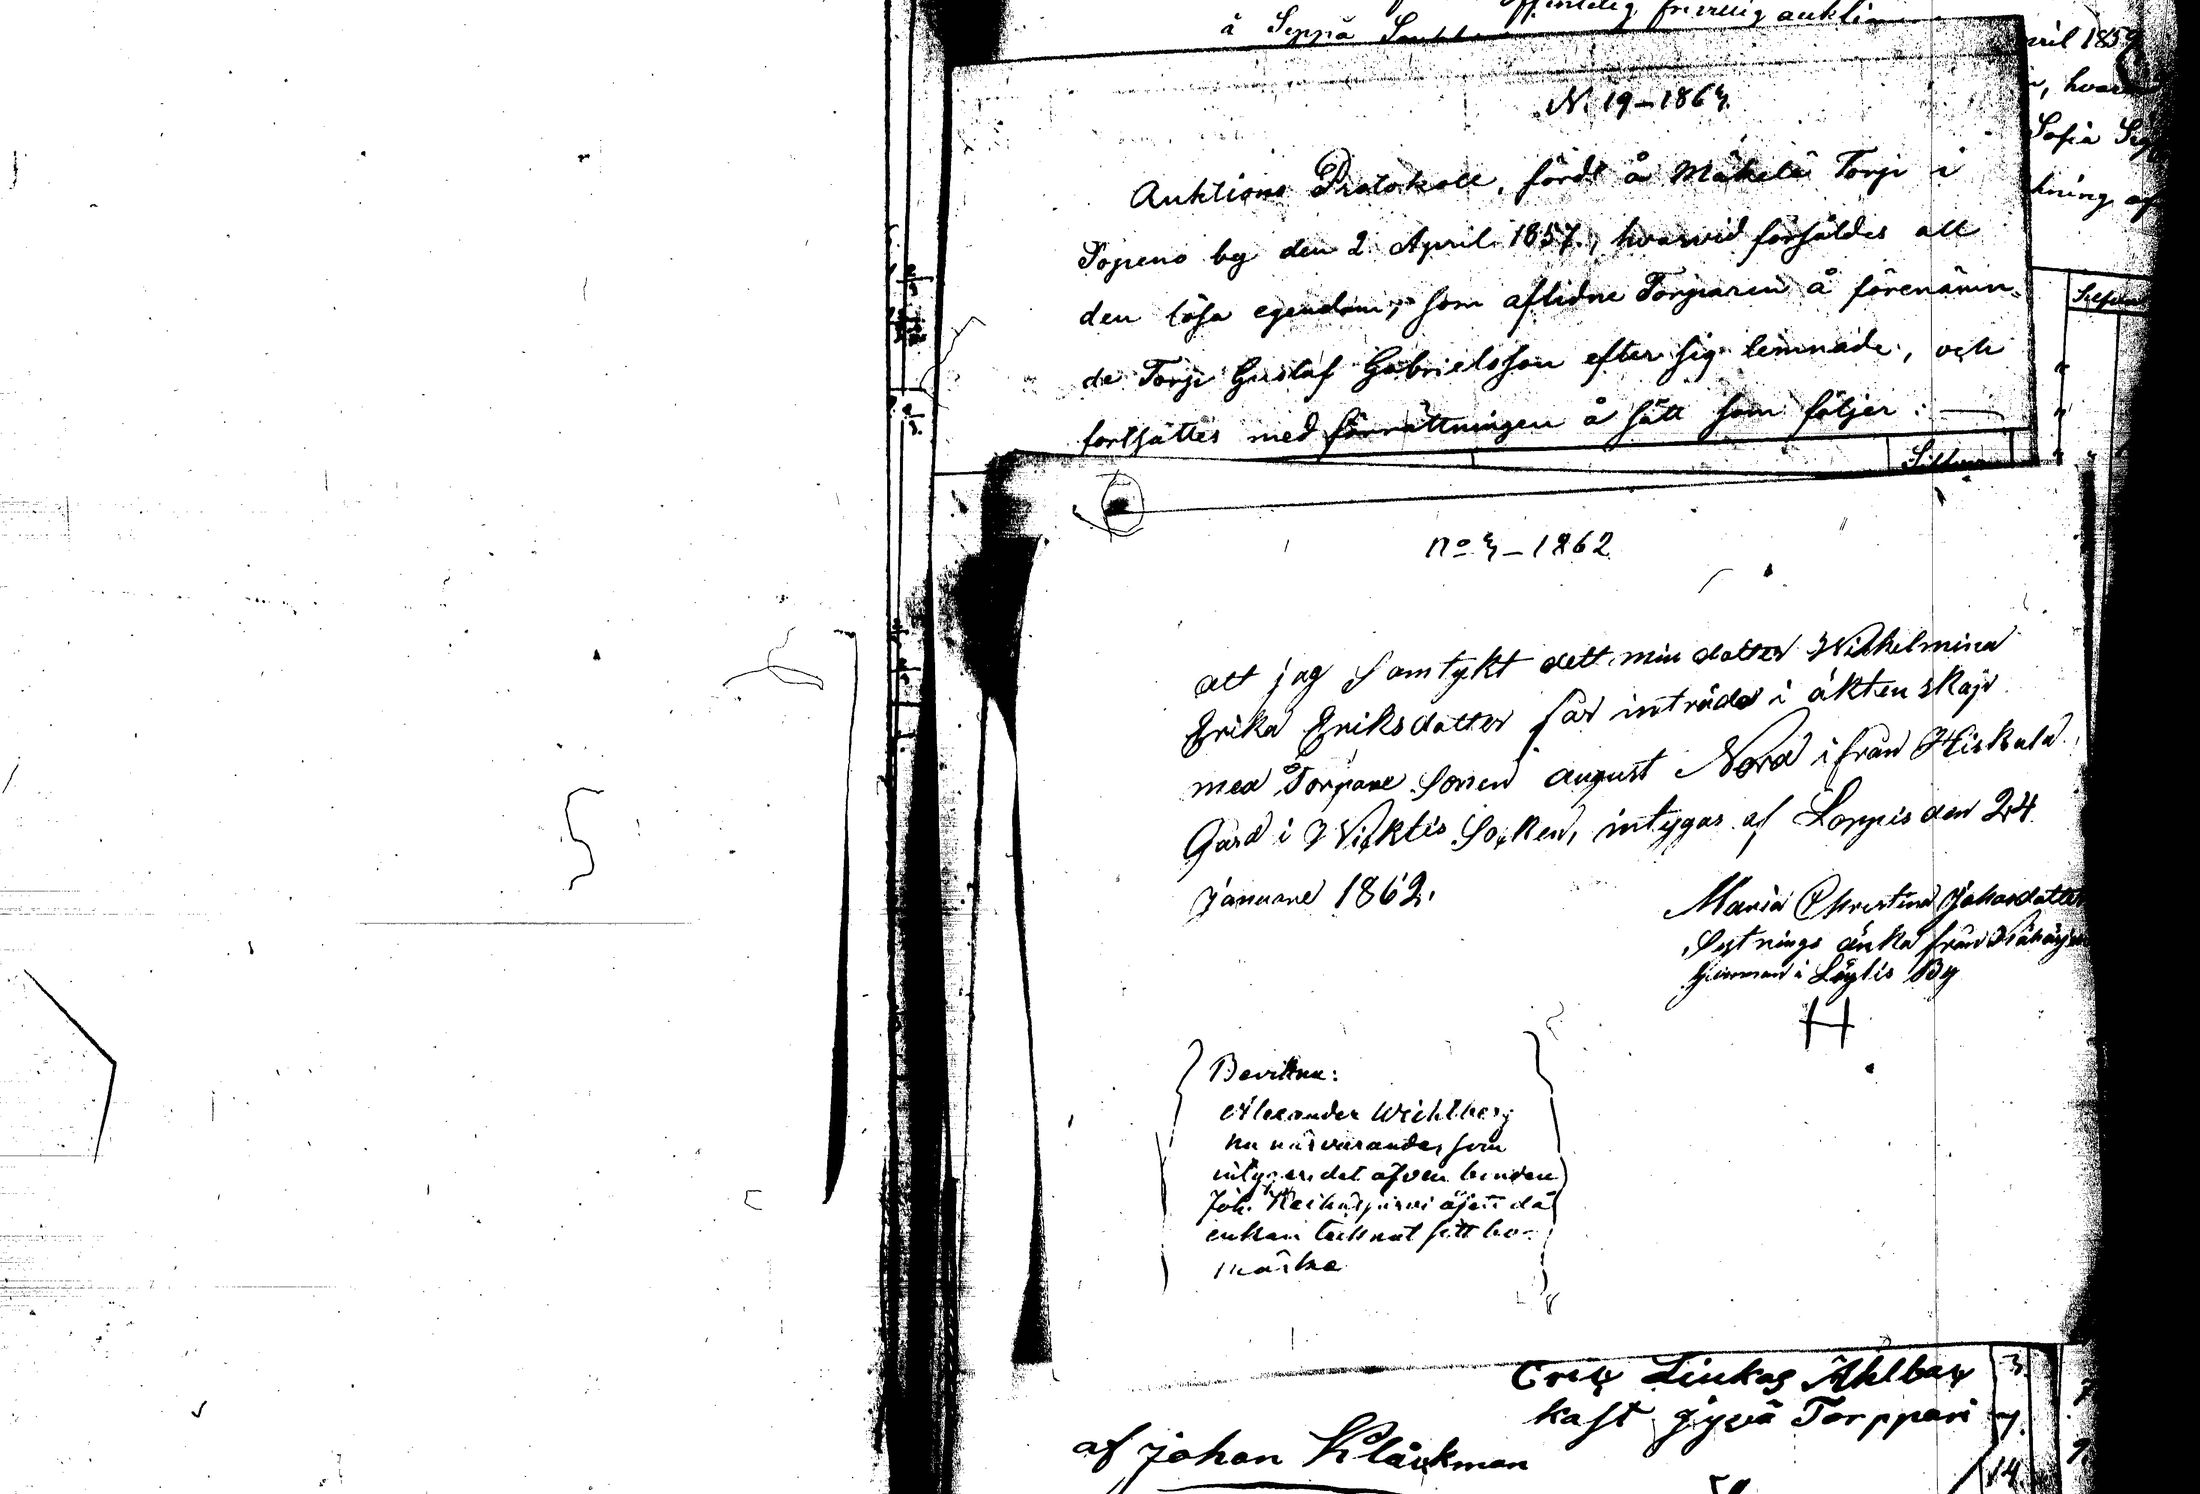 offentelig frivillig auktion
å Seppä
April 1859
Sofia
N. 19–1863.
Auktions Protokoll, fördt å Mäkelä Torp i
Topeno by den 2 April 1857, hvarvid försåldes all
den lösa egendom, som aflidne Torparen å förenämn-
de Torp Gustaf Gabrielsson efter sig lemnade, och
fortsattes med förrättningen å sätt som följer:
No 3–1862
att jag Samtykt dett min dotter Wilhelmina
Erika Eriksdotter får inträda i äktenskap
med Torpare Sonen august Nord ifrån Hiskula
Gård i Wichtis Socken, intygas af Loppis den 24
Januare 1862.
Maria Christina Johansdotter
Sytnings änka från
hemman i Löylis By
Bevittna:
Alexander Wichtberg
nu närvarande, som
intygar det äfven bonden
Joh.
enkan tecknat sitt bo-
märke
Eric Linkas Åhlbax
kast jyvä Torppari
af Johan Klåckman